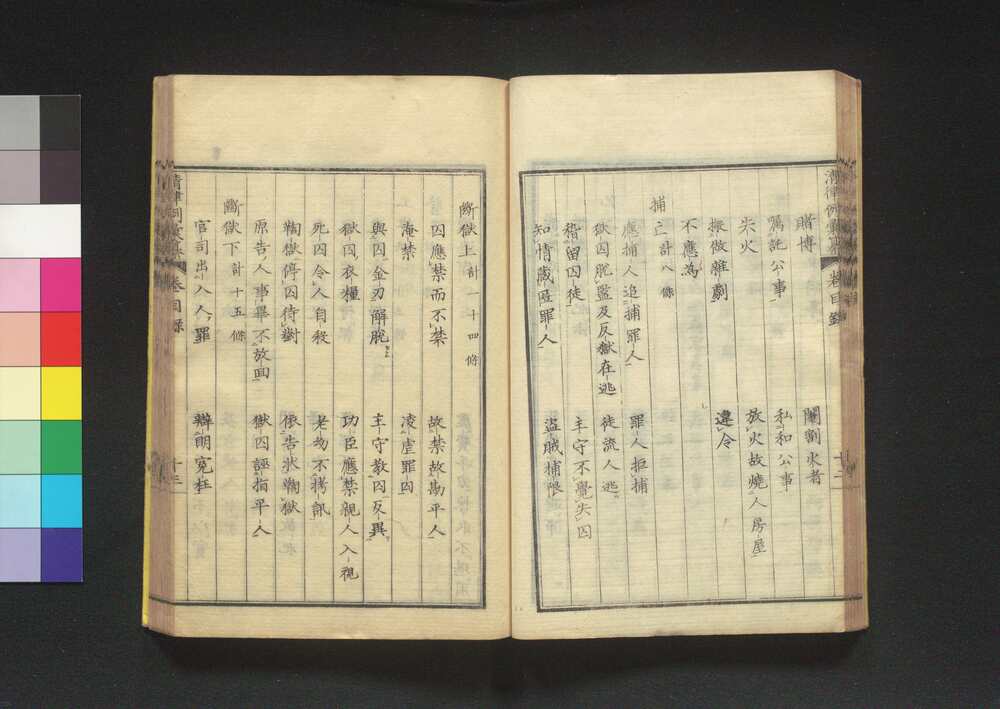 清律例彙纂 卷目錄 十三
賭博 閹割火者
嘱託公事 私和公事
失火 放火故燒人房屋
搬做雜劇 違令
不應為
捕亡 計八條
應捕人追捕罪人 罪人拒捕
獄囚脫監及反獄在逃 徒流人逃
稽留囚徒 主守不覺失囚
知情藏匿罪人 盜賊捕限
斷獄上 計一十四條
囚應禁而不禁 故禁故勘平人
淹禁 凌虐罪囚
與囚金刃解脫 主守教囚反異
獄囚衣糧 功臣應禁親人入視
死囚令人自殺 老幼不拷訊
鞫獄停囚待對 依告狀鞫獄
原告人事畢不放回 獄囚誣指平人
斷獄下 計十五條
官司出入人罪 辯明冤枉
清律例彙纂 卷目錄 十三